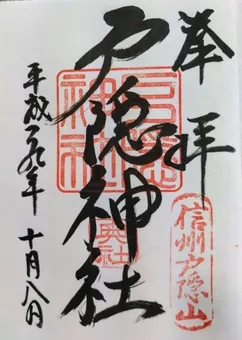 奉拝
戸隠神社
平成二九年 十月八日
戸隠神社
奥社
信州戸隠山